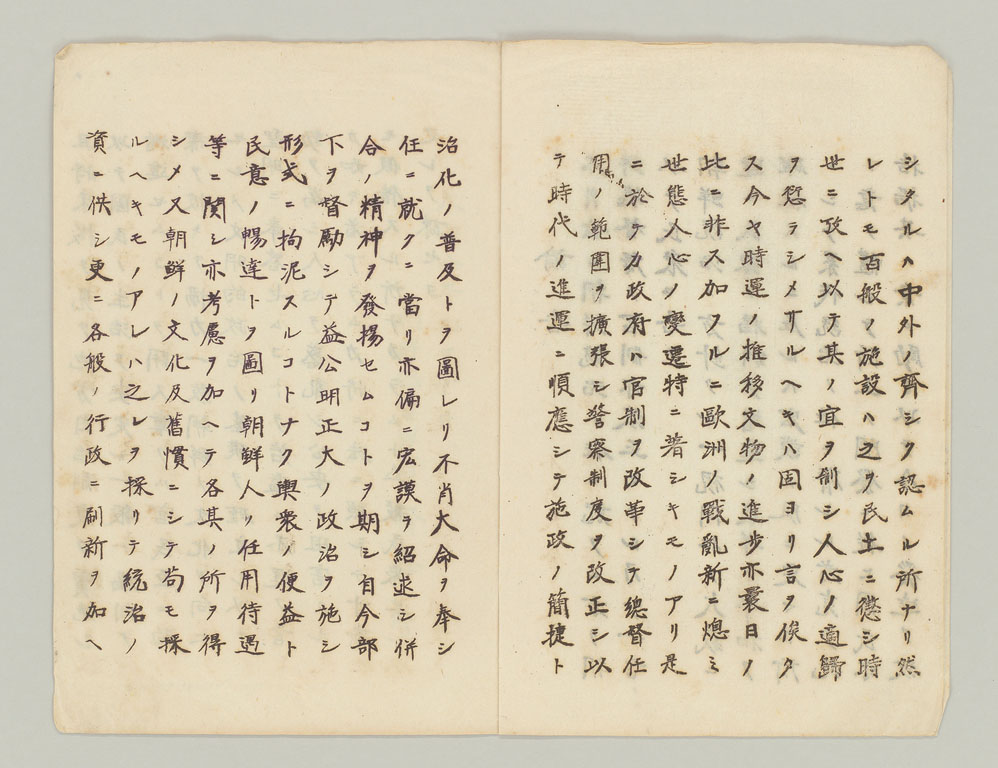 シタルハ中外ノ齊シク認ムル所ナリ然
レトモ百般ノ施設ハ之ヲ民土ニ懲シ時
世ニ攷ヘ以テ其ノ宜ヲ制シ人心ノ適歸
ヲ愆テシメサルヘキハ固ヨリ言ヲ俟タ
ス今ヤ時運ノ推移文物ノ進步亦曩日ノ
此ニ非ス加フルニ歐洲ノ戰亂新ニ熄ミ
世態人心ノ變遷特ニ著シキモノアリ是
ニ於テカ政府ハ官制ヲ改革シテ總督任
用ノ範圍ヲ擴張シ警察制度ヲ改正シ以
テ時代ノ進運ニ順應シテ施政ノ簡捷ト
治化ノ普及トヲ圖レリ不肖大命ヲ奉シ
任ニ就クニ當リ亦偏ニ宏謨ヲ紹述シ併
合ノ精神ヲ發揚セムコトヲ期シ自今部
下ヲ督勵シテ益公明正大ノ政治ヲ施シ
形式ニ拘泥スルコトナク輿衆ノ便益ト
民意ノ暢達トヲ圖リ朝鮮人ノ任用待遇
等ニ関シ亦考慮ヲ加ヘテ各其ノ所ヲ得
シメ又朝鮮ノ文化及舊慣ニシテ苟モ採
ルヘキモノアレハ之レヲ採リテ統治ノ
資ニ供シ更ニ各般ノ行政ニ刷新ヲ加ヘ